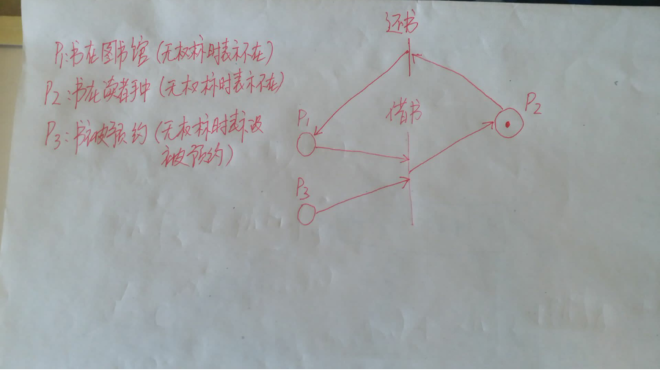 P₁:书在图书馆(无权标时表示不在)
P₂:书在读者手中(无权标时表示不在)
P₃:书被预约(无权标时表示没
有被预约)
还书
借书
P₁
P₂
P₃